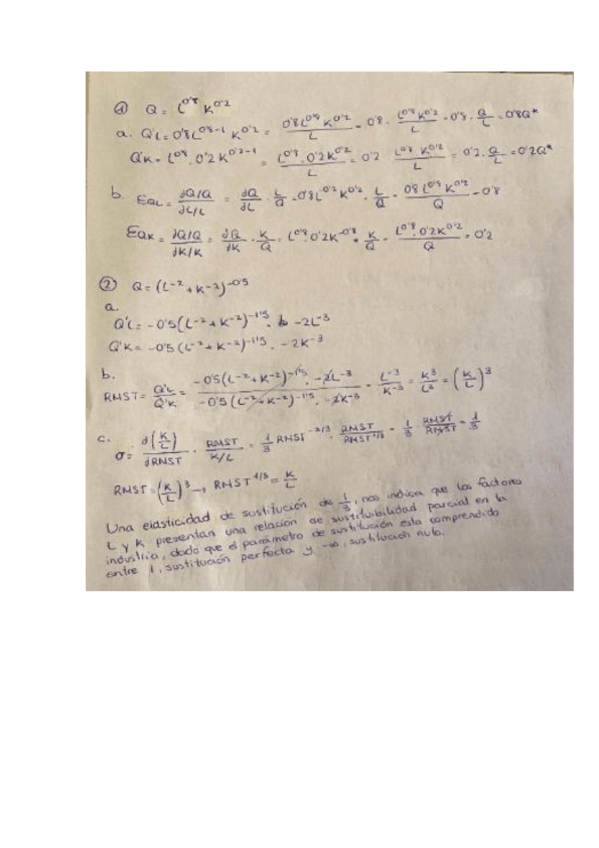 ① Q = L^0'8 K^0'2
a. Q'L = 0'8L^0'8-1 K^0'2 = 0'8L^0'8 K^0'2 / L = 0'8 · L^0'8 K^0'2 / L = 0'8 · Q/L = 0'8Q*
Q'K = L^0'8 · 0'2K^0'2-1 = L^0'8 · 0'2K^0'2 / L = 0'2 L^0'8 K^0'2 / L = 0'2 · Q/L = 0'2Q*
b. EQL = ∂Q/Q / ∂L/L = ∂Q/∂L · L/Q = 0'8L^-0'2 K^0'2 · L/Q = 0'8L^0'8 K^0'2 / Q = 0'8
EQK = ∂Q/Q / ∂K/K = ∂Q/∂K · K/Q = L^0'8 · 0'2K^-0'8 · K/Q = L^0'8 · 0'2K^0'2 / Q = 0'2
② Q = (L^-2 + K^-2)^-0'5
a.
Q'L = -0'5(L^-2 + K^-2)^-1'5 · -2L^-3
Q'K = -0'5(L^-2 + K^-2)^-1'5 · -2K^-3
b.
RMST = Q'L / Q'K = -0'5(L^-2 + K^-2)^-1'5 · -2L^-3 / -0'5(L^-2 + K^-2)^-1'5 · -2K^-3 = L^-3 / K^-3 = K^3 / L^3 = (K/L)^3
c.
σ = d(K/L) / dRMST · RMST / K/L = 1/3 RMST^-2/3 · RMST / RMST^1/3 = 1/3 RMST / RMST = 1/3
RMST = (K/L)^3 → RMST^1/3 = K/L
Una elasticidad de sustitución de 1/3, nos indica que los factores
L y K presentan una relación de sustituibilidad parcial en la
industria, dado que el parámetro de sustitución esta comprendido
entre 1, sustitución perfecta y -∞, sustitución nula.